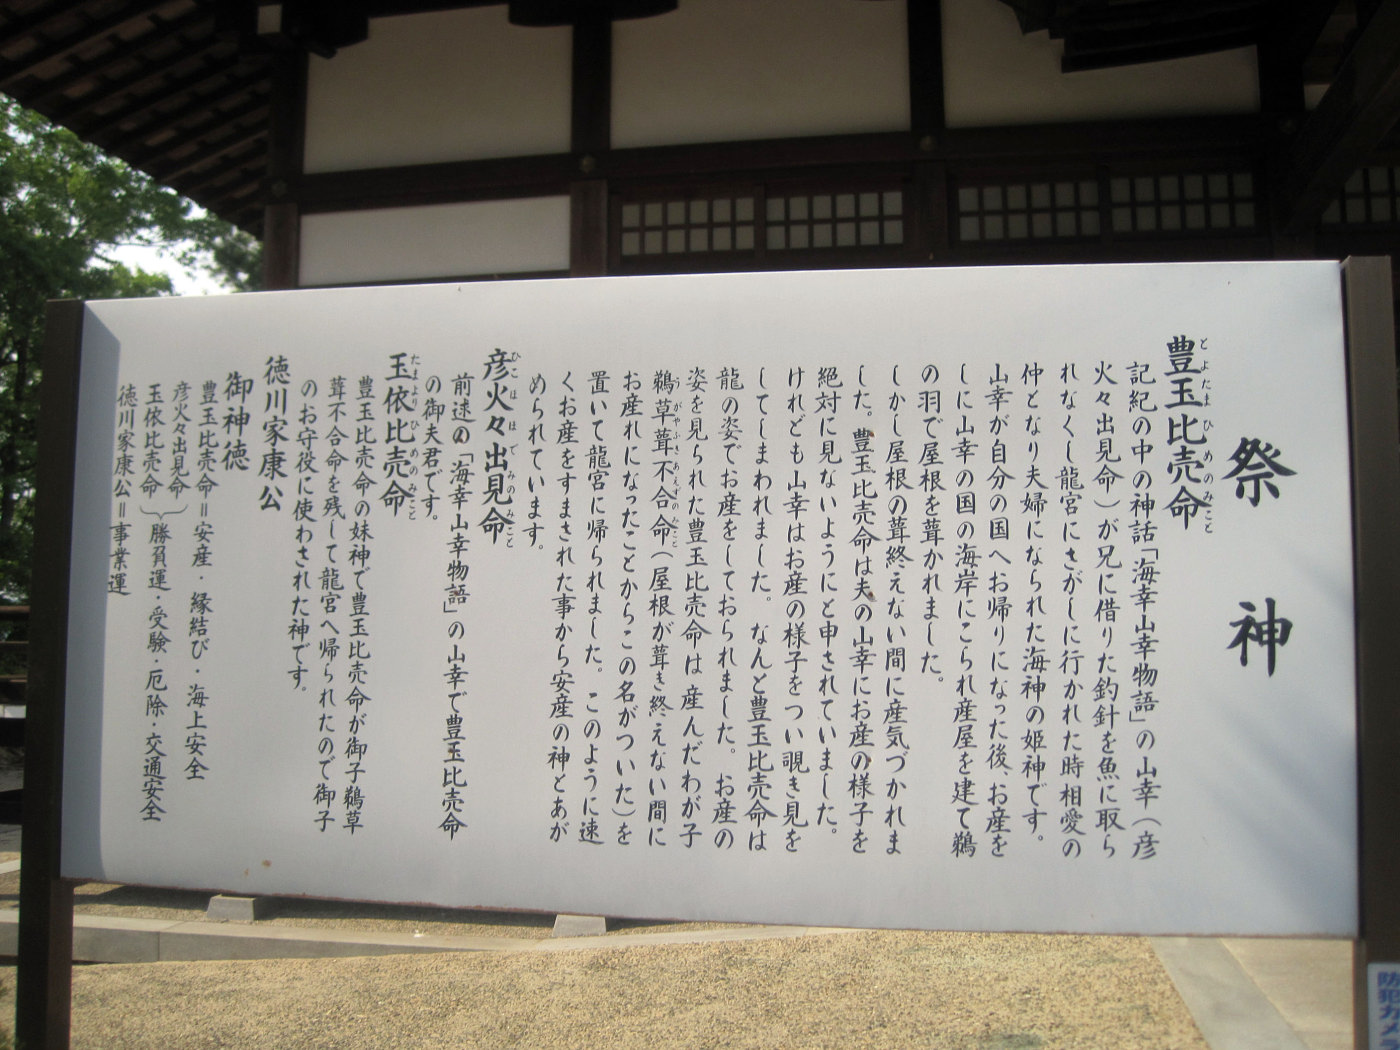 祭神
豊玉比売命
とよたまひめのみこと
記紀の中の神話「海幸山幸物語」の山幸（彦
火々出見命）が兄に借りた釣針を魚に取ら
れなくし龍宮にさがしに行かれた時相愛の
仲となり夫婦になられた海神の姫神です。
山幸が自分の国へお帰りになった後、お産を
しに山幸の国の海岸にこられ産屋を建て鵜
の羽で屋根を葺かれました。
しかし屋根の葺終えない間に産気づかれま
した。豊玉比売命は夫の山幸にお産の様子を
絶対に見ないようにと申されていました。
けれども山幸はお産の様子をつい覗き見を
してしまわれました。なんと豊玉比売命は
龍の姿でお産をしておられました。お産の
姿を見られた豊玉比売命は産んだわが子
鵜草葺不合命（屋根が葺き終えない間に
うがやふきあえずのみこと
お産れになったことからこの名がついた）を
置いて龍宮に帰られました。このように速
くお産をすまされた事から安産の神とあが
められています。
彦火々出見命
ひこほほでみのみこと
前述の「海幸山幸物語」の山幸で豊玉比売命
の御夫君です。
玉依比売命
たまよりひめのみこと
豊玉比売命の妹神で豊玉比売命が御子鵜草
葺不合命を残して龍宮へ帰られたので御子
のお守役に使わされた神です。
徳川家康公
御神徳
豊玉比売命＝安産・縁結び・海上安全
彦火々出見命
玉依比売命
勝負運・受験・厄除・交通安全
徳川家康公＝事業運
防犯カメラ